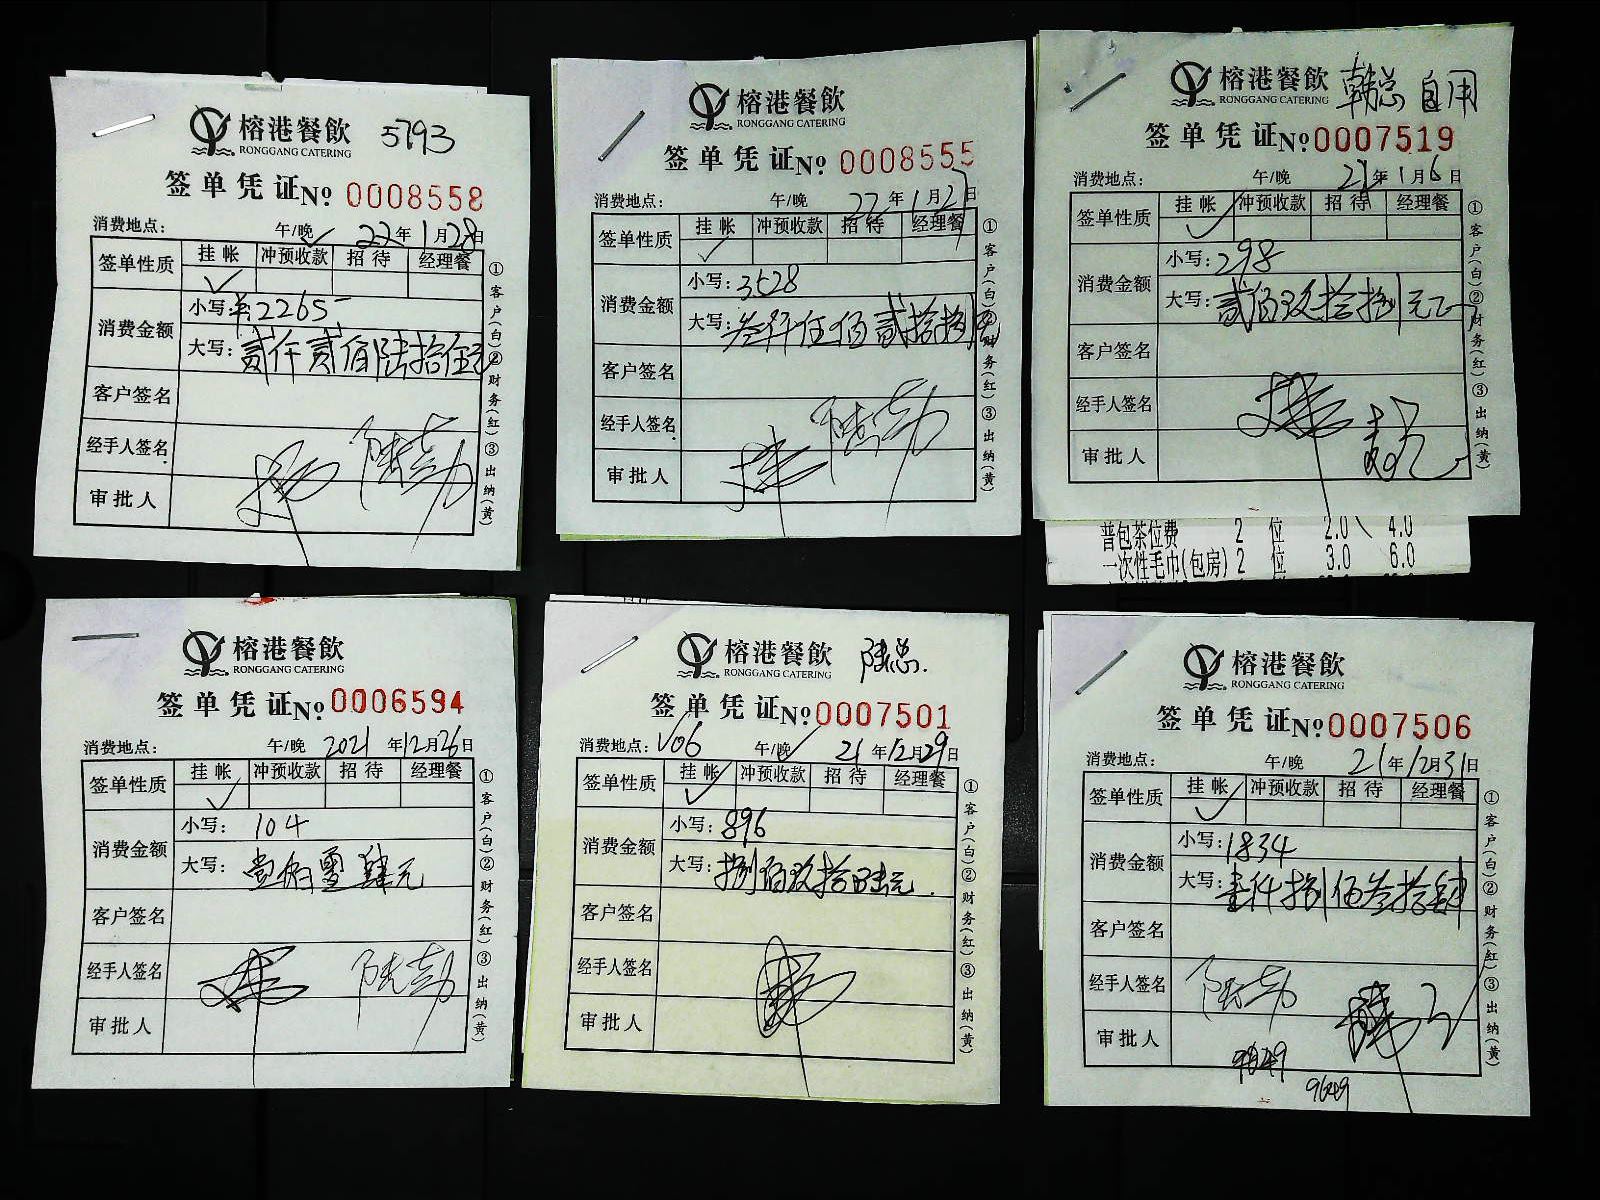 榕港餐飲 5793
RONGGANG CATERING
签单凭证 No 0008558
消费地点： 午/晚 ✓ 22年1月28日
签单性质 挂帐 冲预收款 招待 经理餐
✓
消费金额 小写：¥2265-
大写：贰仟贰佰陆拾伍元
客户签名
经手人签名 陆勃
审批人
①客户(白)②财务(红)③出纳(黄)
榕港餐飲
RONGGANG CATERING
签单凭证 No 0008555
消费地点： 午/晚 22年1月27日
签单性质 挂帐 冲预收款 招待 经理餐
✓
消费金额 小写：3528
大写：叁仟伍佰贰拾捌元
客户签名
经手人签名 陆勃
审批人
①客户(白)②财务(红)③出纳(黄)
榕港餐飲 韩总 自用
RONGGANG CATERING
签单凭证 No 0007519
消费地点： 午/晚 21年1月6日
签单性质 挂帐 冲预收款 招待 经理餐
✓
消费金额 小写：298
大写：贰佰玖拾捌元
客户签名
经手人签名
审批人
①客户(白)②财务(红)③出纳(黄)
普包茶位费 2 位 2.0 4.0
一次性毛巾(包房) 2 位 3.0 6.0
榕港餐飲
RONGGANG CATERING
签单凭证 No 0006594
消费地点： 午/晚 2021年12月26日
签单性质 挂帐 冲预收款 招待 经理餐
✓
消费金额 小写：104
大写：壹佰零肆元
客户签名
经手人签名 陆勃
审批人
①客户(白)②财务(红)③出纳(黄)
榕港餐飲 陆总.
RONGGANG CATERING
签单凭证 No 0007501
消费地点：V06 午/晚 ✓ 21年12月29日
签单性质 挂帐 冲预收款 招待 经理餐
✓
消费金额 小写：896
大写：捌佰玖拾陆元.
客户签名
经手人签名
审批人
①客户(白)②财务(红)③出纳(黄)
榕港餐飲
RONGGANG CATERING
签单凭证 No 0007506
消费地点： 午/晚 21年12月31日
签单性质 挂帐 冲预收款 招待 经理餐
✓
消费金额 小写：1834
大写：壹仟捌佰叁拾肆
客户签名
经手人签名 陆勃
审批人
①客户(白)②财务(红)③出纳(黄)